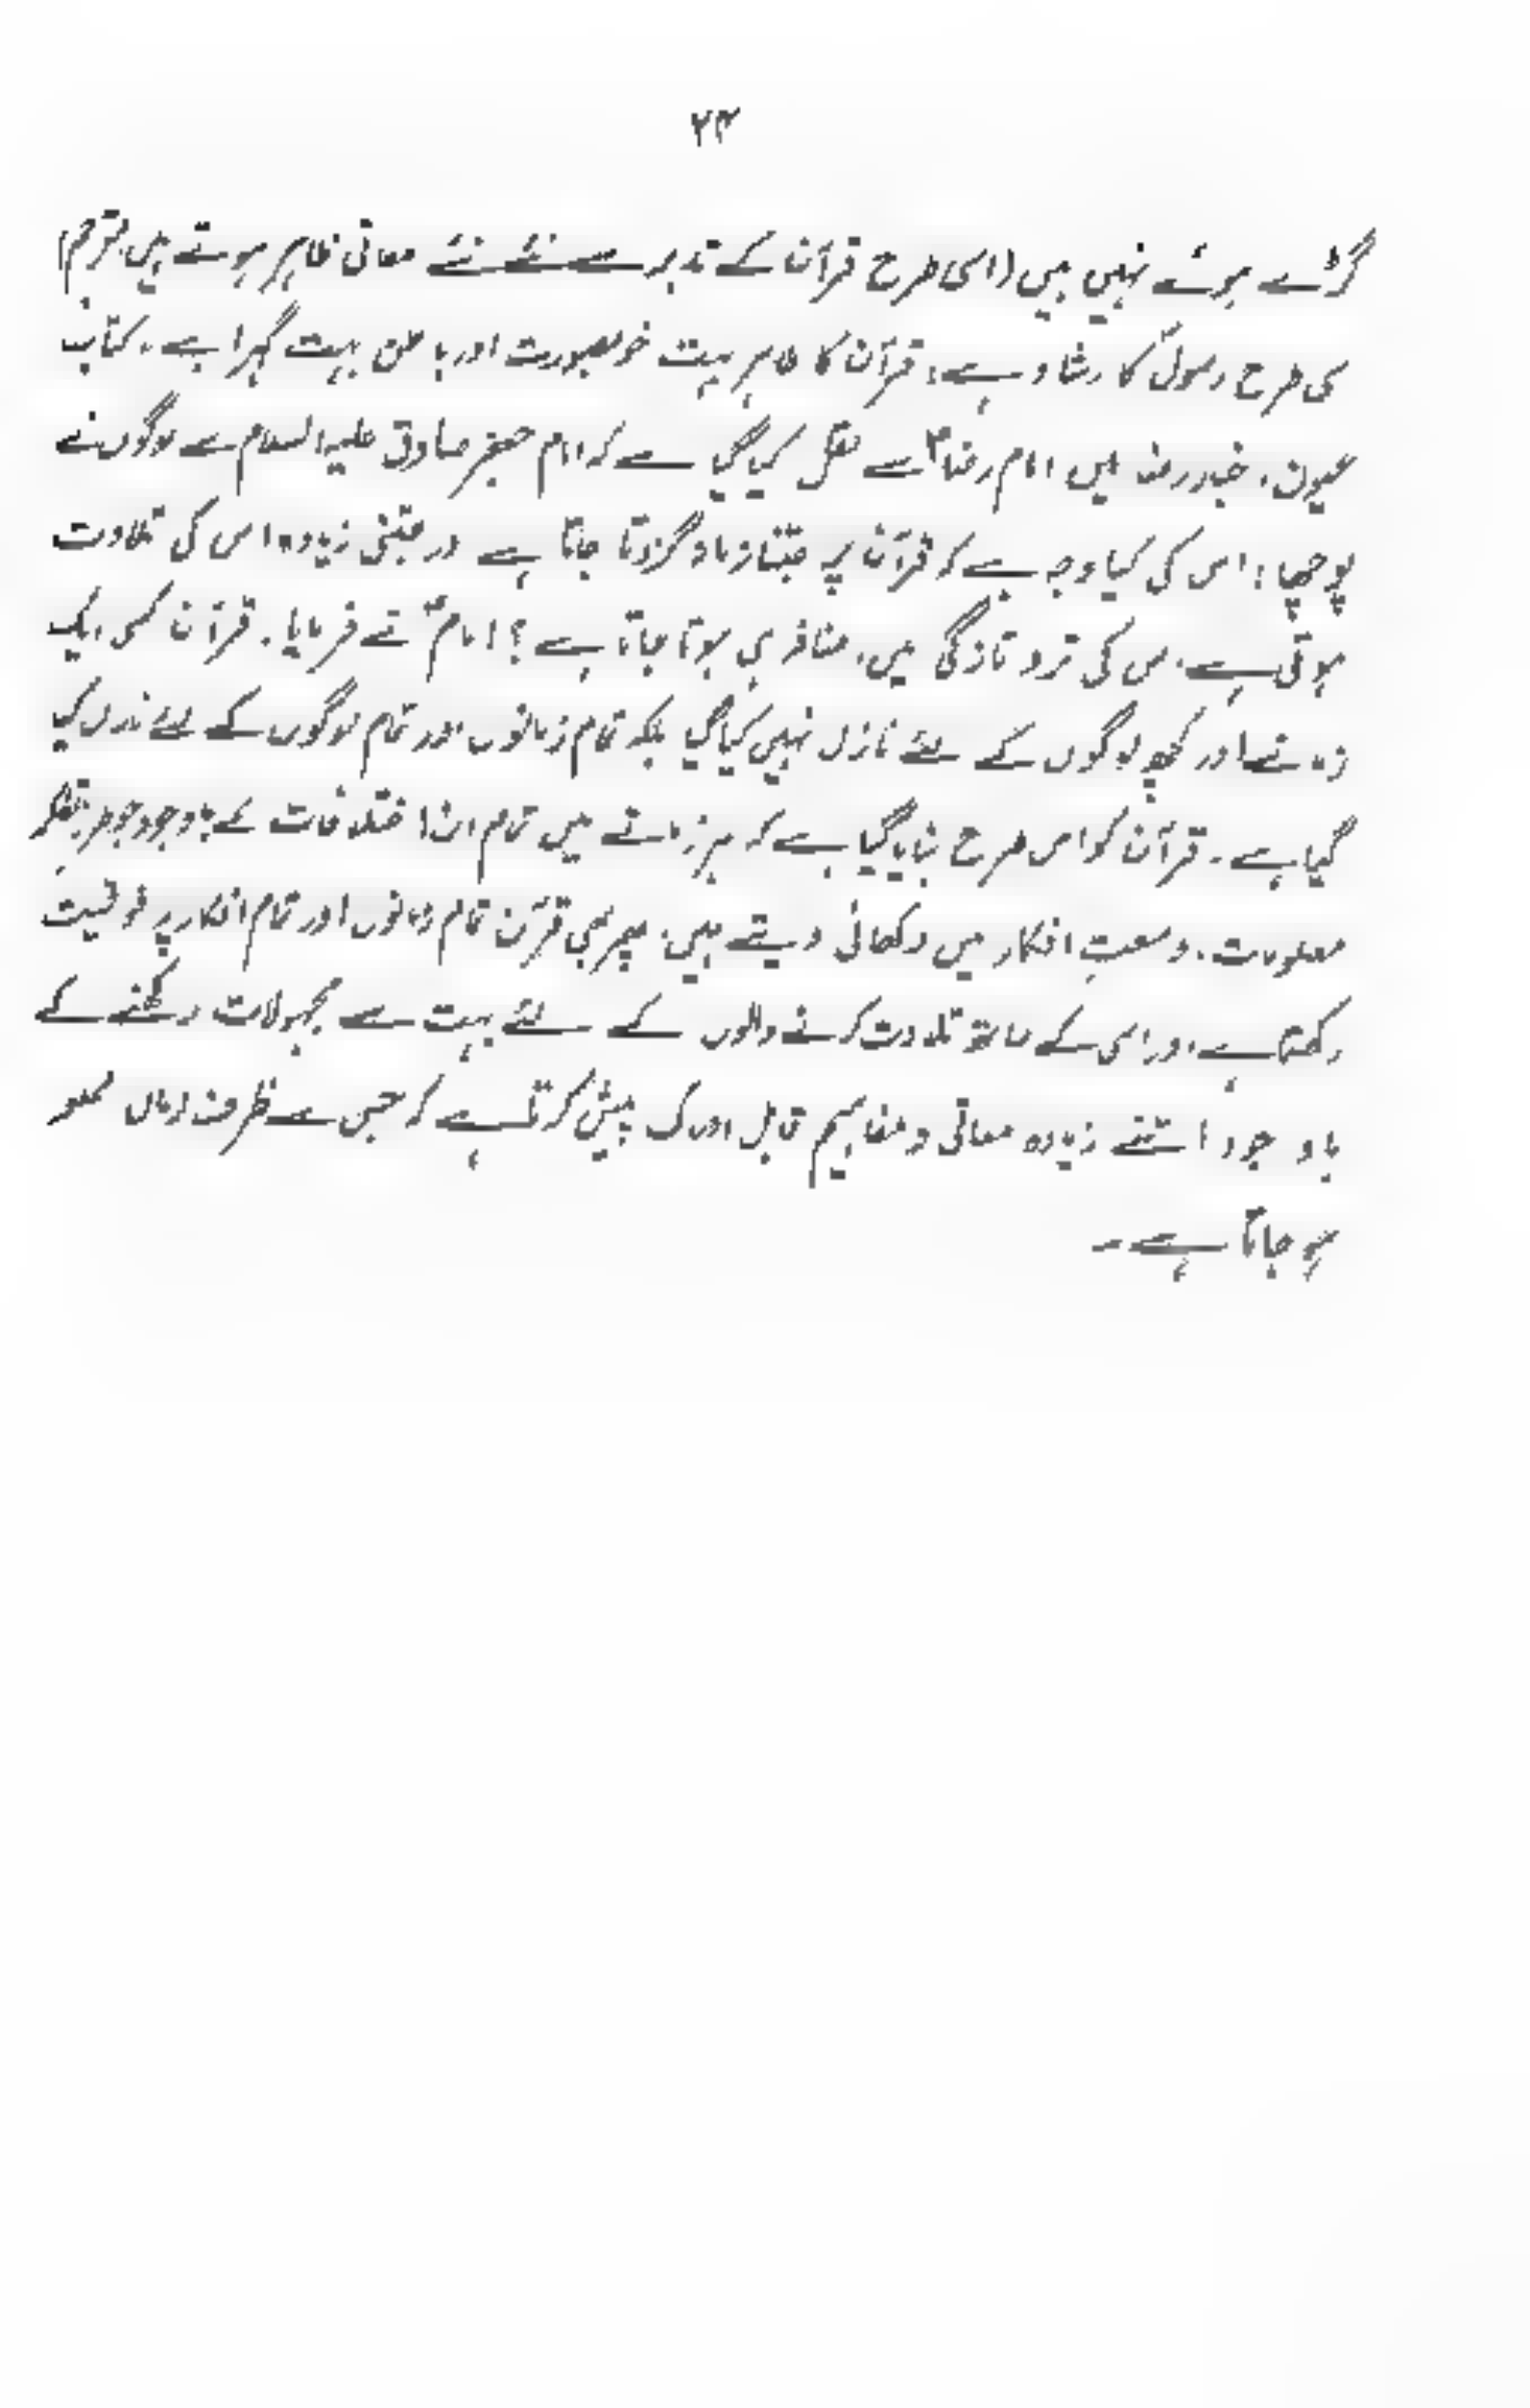 ۲۳
گڑے ہوئے نہیں ہیں (اسی طرح قرآن کے تدبر سے نئے نئے معانی ظاہر ہوتے ہیں مترجم)
اسی طرح رسولؐ کا ارشاد ہے: قرآن کا ظاہر بہت خوبصورت اور باطن بہت گہرا ہے۔ کتاب
عیون اخبار رضا میں امام رضاؑ سے نقل کیا گیا ہے کہ امام جعفر صادق علیہ السلام سے لوگوں نے
پوچھا: اس کی کیا وجہ ہے کہ قرآن پر جتنا زمانہ گزرتا جاتا ہے اور جتنی زیادہ اس کی تلاوت
ہوتی ہے اس کی تر و تازگی میں اضافہ ہی ہوتا جاتا ہے؟ امامؑ نے فرمایا۔ قرآن کسی ایک
زمانے اور کچھ لوگوں کے لئے نازل نہیں کیا گیا بلکہ تمام زمانوں اور تمام لوگوں کے لئے نازل کیا
گیا ہے۔ قرآن کو اس طرح بنایا گیا ہے کہ ہر زمانے میں تمام ان اختلافات کے باوجود جو طرز تفکر
معلومات، وسعتِ افکار میں دکھائی دیتے ہیں۔ پھر بھی قرآن تمام زمانوں اور تمام افکار پر فوقیت
رکھتا ہے اور اسی کے ساتھ تلاوت کرنے والوں کے لئے بہت سے مجہولات رکھنے کے
باوجود اتنے زیادہ معانی و مفاہیم قابل ادراک پیش کرتا ہے کہ جس سے ظرف زماں مملو
ہو جاتا ہے۔